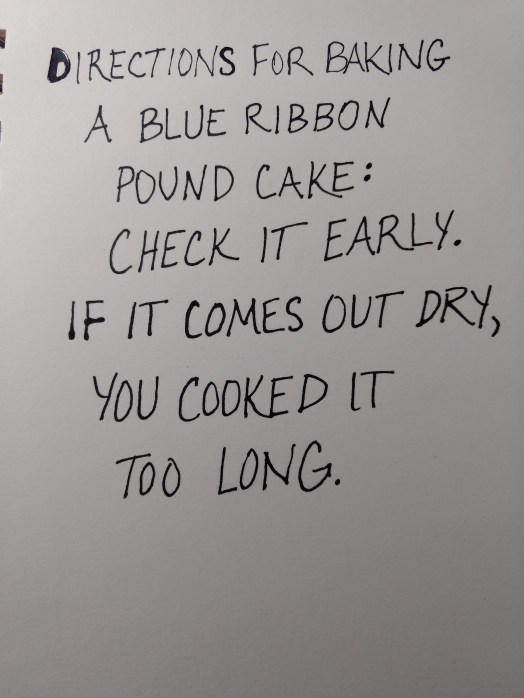 DIRECTIONS FOR BAKING
A BLUE RIBBON
POUND CAKE:
CHECK IT EARLY.
IF IT COMES OUT DRY,
YOU COOKED IT
TOO LONG.